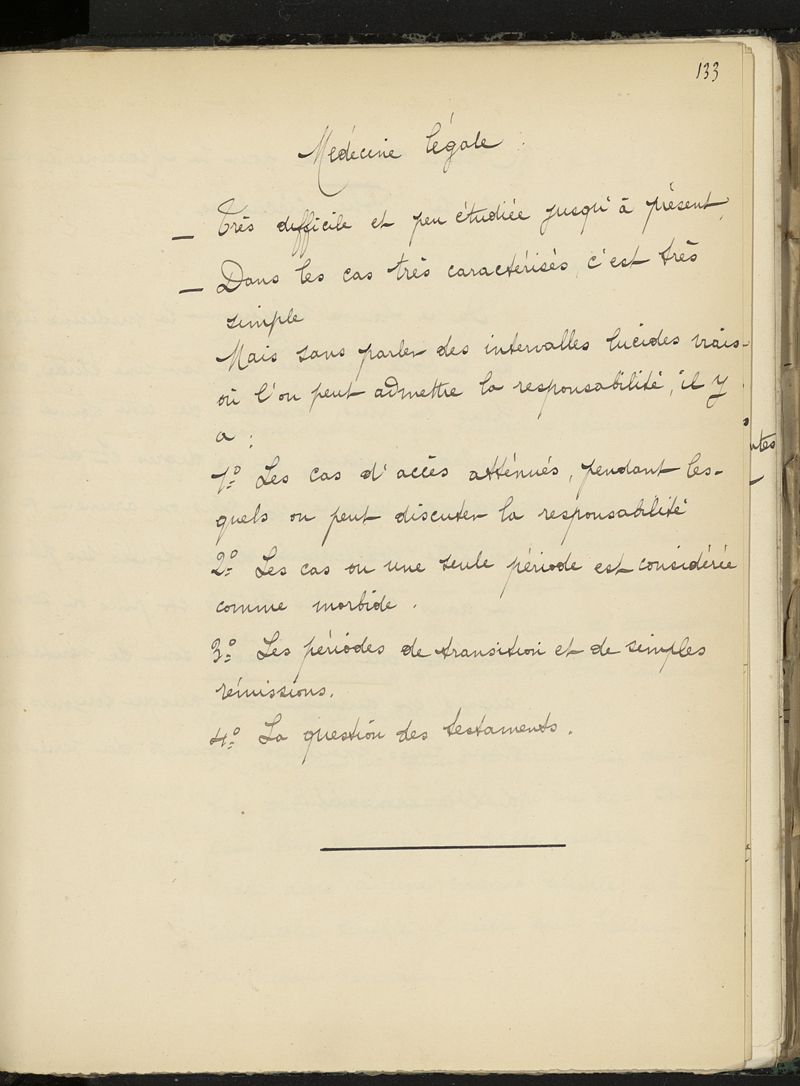 133
Médecine légale.
— Très difficile et peu étudiée jusqu'à présent,
— Dans les cas très caractérisés, c'est très
simple
Mais sans parler des intervalles lucides vrais
où l'on peut admettre la responsabilité, il y
a :
1º Les cas d'accès atténués, pendant les-
quels on peut discuter la responsabilité
2º Les cas ou une seule période est considérée
comme morbide.
3º Les périodes de transition et de simples
rémissions.
4º La question des testaments.